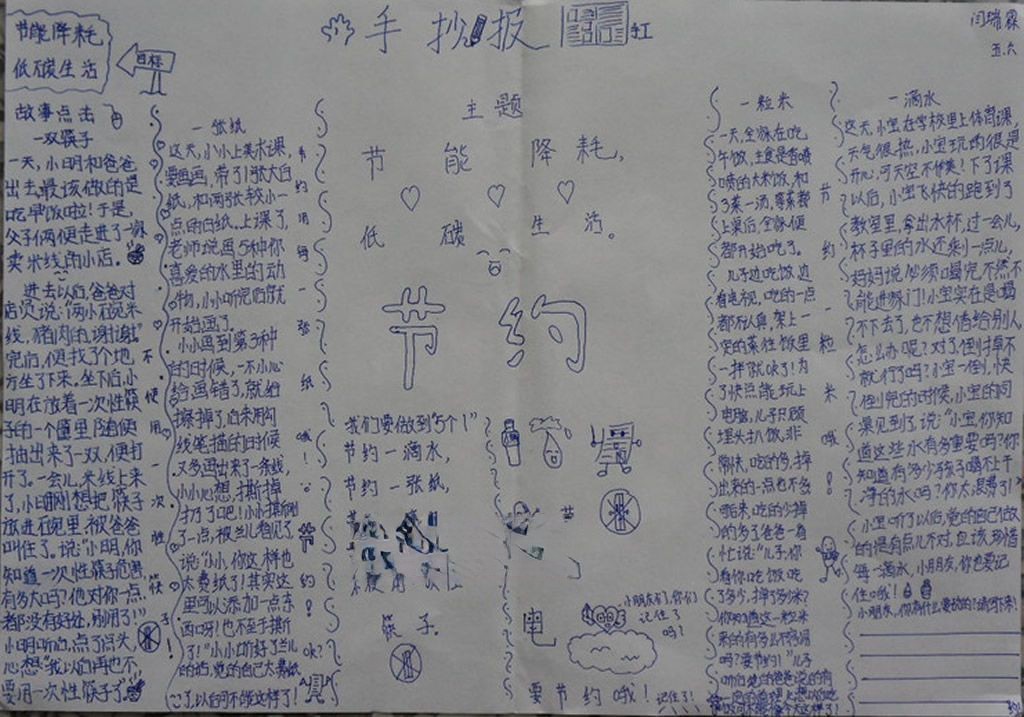 节能降耗
低碳生活
目标
手抄报
闫瑞霖
五.六
故事点击
一双筷子
一天，小明和爸爸
出去，最该做的是
吃早饭啦！于是，
父子俩便走进了一家
卖米线的小店。
进去以后，爸爸对
店员说："俩小碗米
线，猪肉的，谢谢！"
完后，便找了个地
方坐了下来。坐下后，小
明在放着一次性筷
子的一个匣里随便
抽出来了一双，便打
开了。一会儿，米线上来
了，小明刚想把筷子
放进碗里，被爸爸
叫住了，说："小明，你
知道一次性筷子危害
有多大吗？他对你一点
都没有好处，别用了！"
小明听后，点了点头，
心想："我以后再也不
要用一次性筷子了"
不使用一次性筷子！
一张纸
这天，小小上美术课，
要画画，带了1张大白
纸，和两张较小一
点的白纸。上课了，
老师说画5种你
喜爱的水里的动
物，小小听完后就
开始画了。
小小画到第3种
的时候，一不小心
给画错了，就给
擦掉了，后来用勾
线笔描的时候
又多画出来了一条线，
小小心想，撕掉
了一点，被
说："小小，你这样也
太费纸了！其实这
里可以添加一点东
西呀！也不至于撕
了！"小小听
的话，觉的自己太费纸
了，以后可不能这样了！
节约用每一张纸哦！
节约！
主题
节能降耗，
低碳生活。
节约
我们要做到"5个1"
节约一滴水，
节约一张纸，
筷子。
节
电
小朋友们，你们
记住了
吗？
要节约哦！记住了！
一粒米
一天，全家在吃
午饭，主食是香喷
喷的大米饭，和
3菜一汤，等菜都
上桌后，全家便
都开始吃了。
儿子边吃饭，边
看电视，吃的一点
都不认真，夹上一
突的菜往饭里
一拌就吃了！为
了快点能玩上
电脑，儿子只顾
埋头扒饭，非
常快，吃的多，掉
出来的点也不多
的多了爸爸一看
忙说："儿子，你
看你吃饭，吃
了多少，掉了多少米？
你知道这一粒米
来的有多么不容易
吗？要节约！"儿子
节约一粒米哦！
一滴水
这天，小宝在学校里上体育课，
天气很热，小宝玩的很是
开心，可天空不作美！下了课
以后，小宝飞快的跑到了
教室里，拿出水杯，过一会儿，
杯子里的水还剩一点儿，
妈妈说必须喝完不然不
能进家门！小宝实在是喝
不下去了，也不想借给别人，
怎么办呢？对了，倒掉不
就行了吗？小宝一倒，快
倒完的时候，小宝的同
桌见到了，说："小宝，你知
道这些水有多重要吗？你
知道有多少孩子喝不上干
净的水吗？你太浪费了！"
小宝听了以后，觉的自己做
的是有点儿不对，应该珍惜
每一滴水，小朋友，你也要记
住哦！
小朋友，你有什么要说的？请写下来！